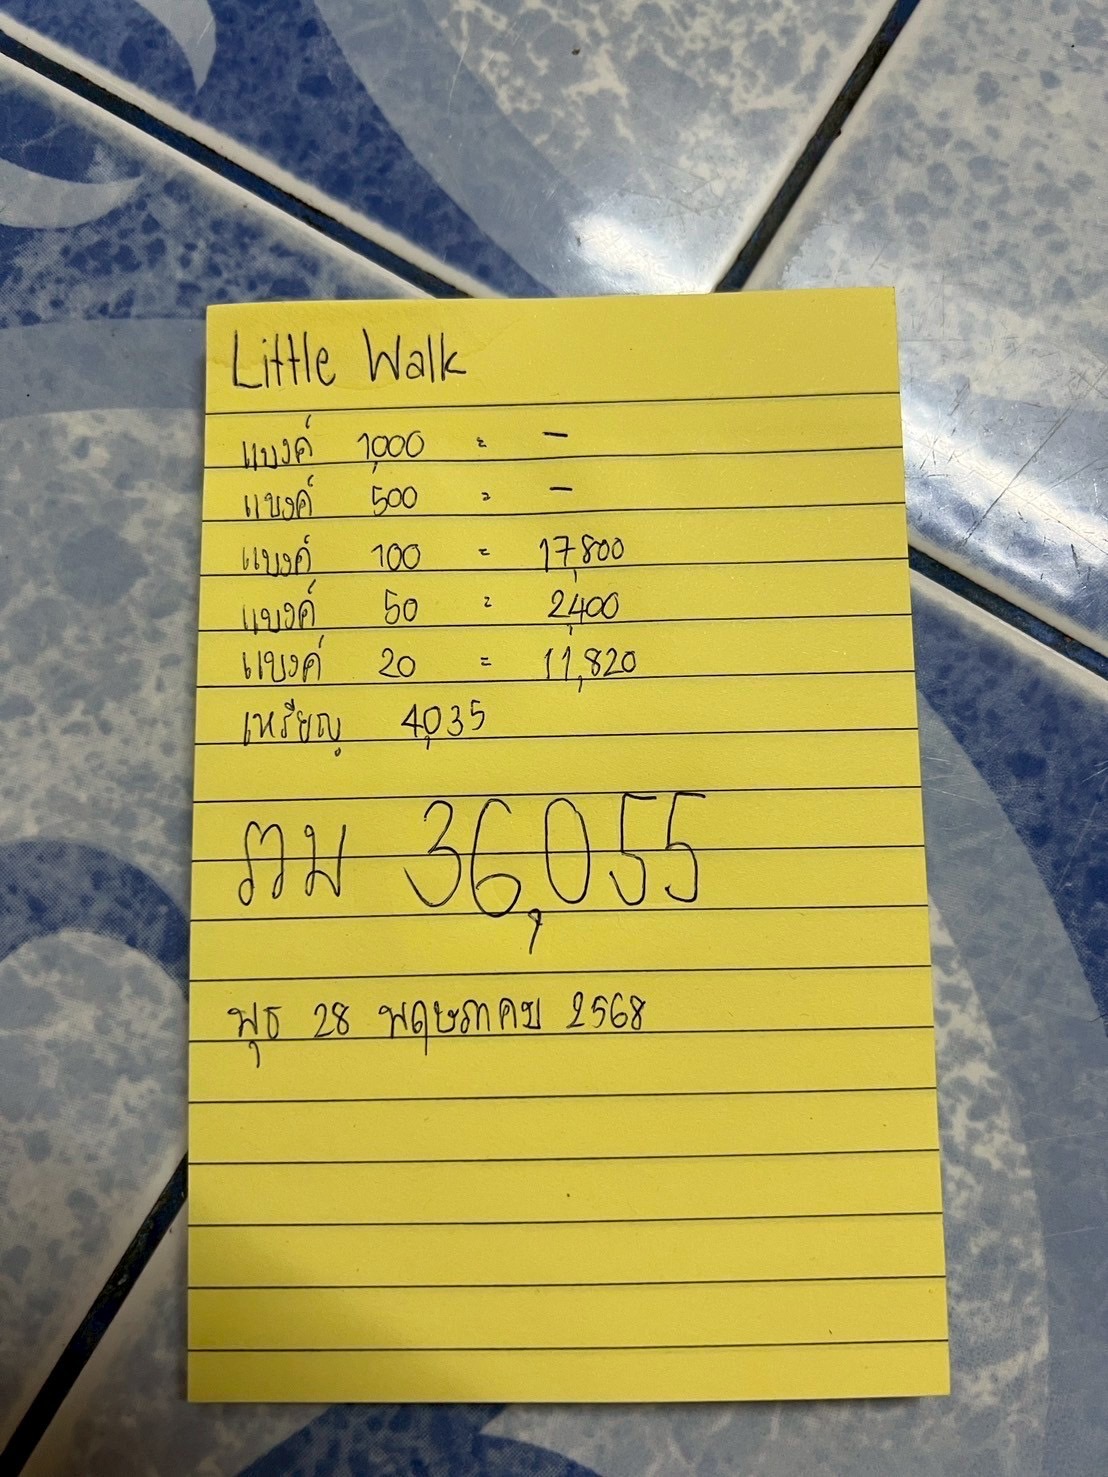 Little Walk
แบงค์ 1,000 = -
แบงค์ 500 = -
แบงค์ 100 = 17,800
แบงค์ 50 = 2,400
แบงค์ 20 = 11,820
เหรียญ 4,035
รวม 36,055
พุธ 28 พฤษภาคม 2568